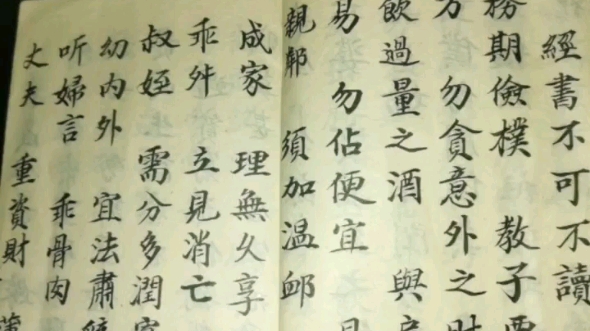 經書不可不讀
務期儉樸 教子要
方 勿貪意外之財
飲過量之酒 與肩
易 勿佔便宜 見
親鄰 須加溫卹
成家 理無久享
乖舛 立見消亡
叔姪 需分多潤寡
幼內外 宜法肅
听婦言 乖骨肉
丈夫 重資財 薄